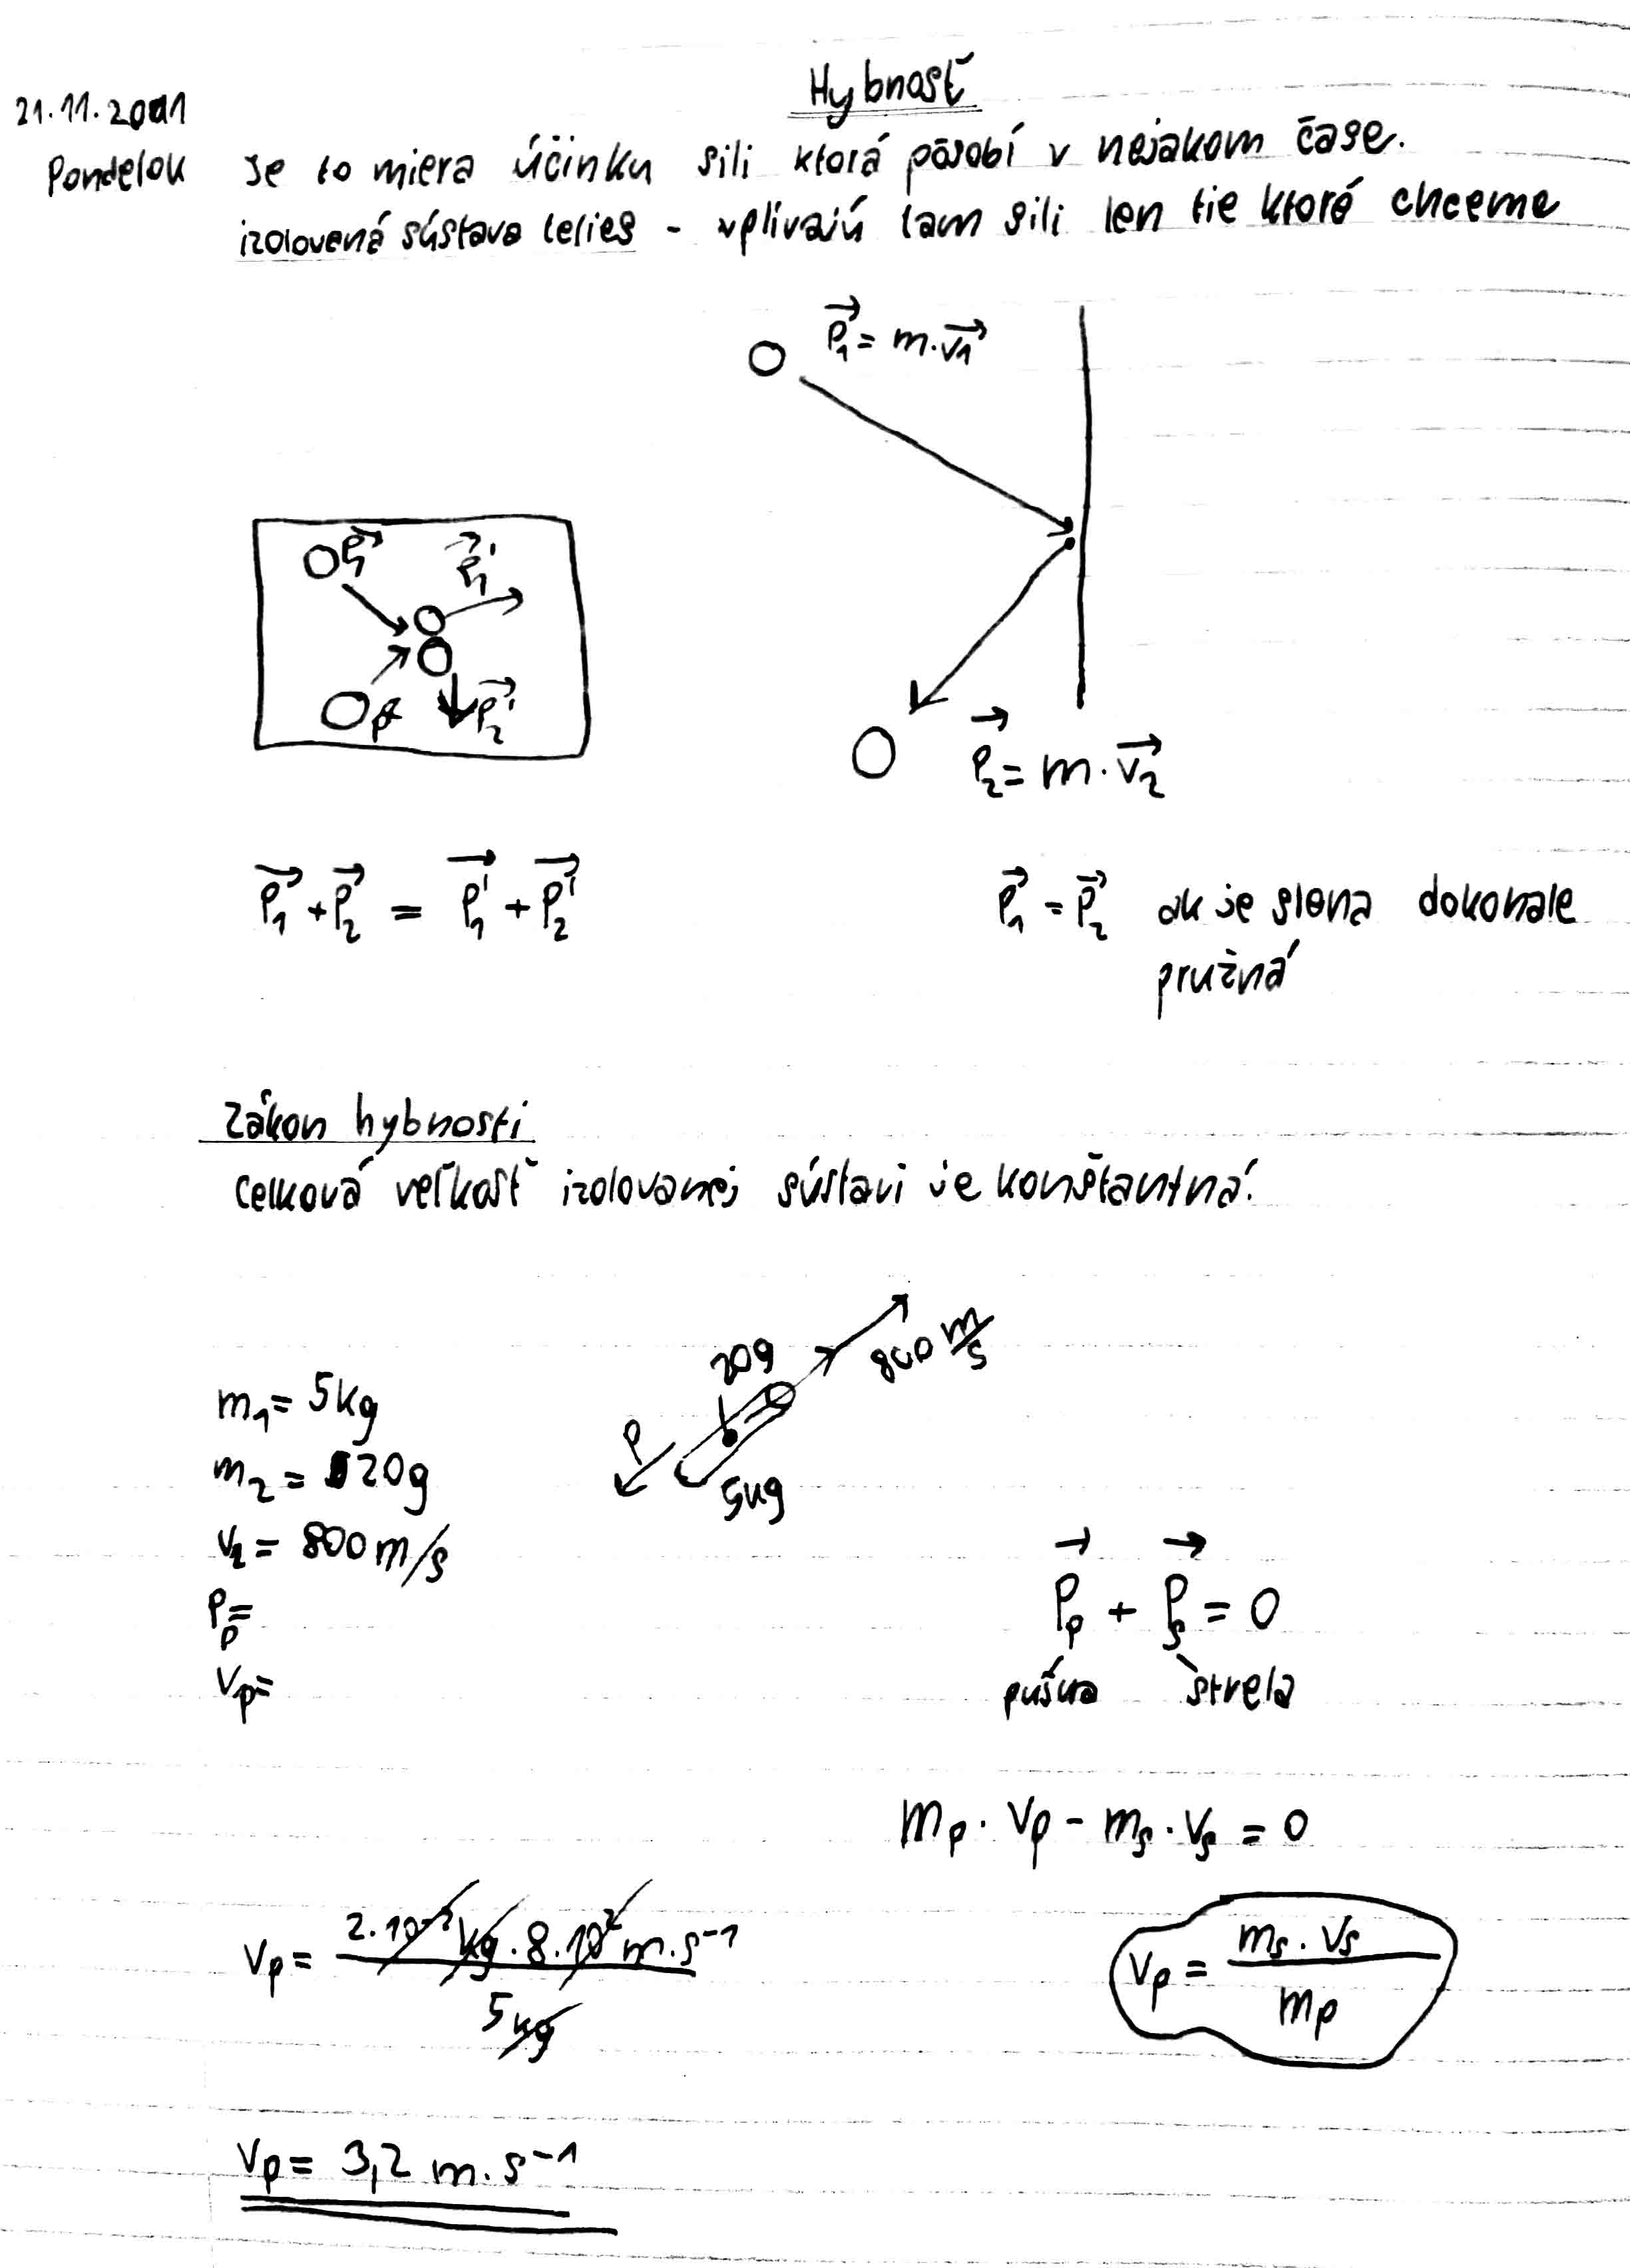 Hybnosť
21.11.2011
Pondelok Je to miera účinku sili ktorá pôsobí v nejakom čase.
izolovená sústava telies - vplívajú tam sili len tie ktoré chceme
p₁ = m.v₁
p₁ p₁'
p₂'
p₂ = m.v₂
p₁ + p₂ = p₁' + p₂'
p₁ = p₂ ak je stena dokonale
pružná
Zákon hybnosti
Celková veľkosť izolovanej sústavi je konštantná.
20g 800 m/s
p
5kg
m₁ = 5kg
m₂ = 20g
v₂ = 800 m/s
Pp =
Vp =
Pp + Ps = 0
puška strela
mp . vp - ms . vs = 0
vp = 2.10⁻² kg . 8.10² m.s⁻¹ / 5 kg
vp = ms . vs / mp
vp = 3,2 m.s⁻¹